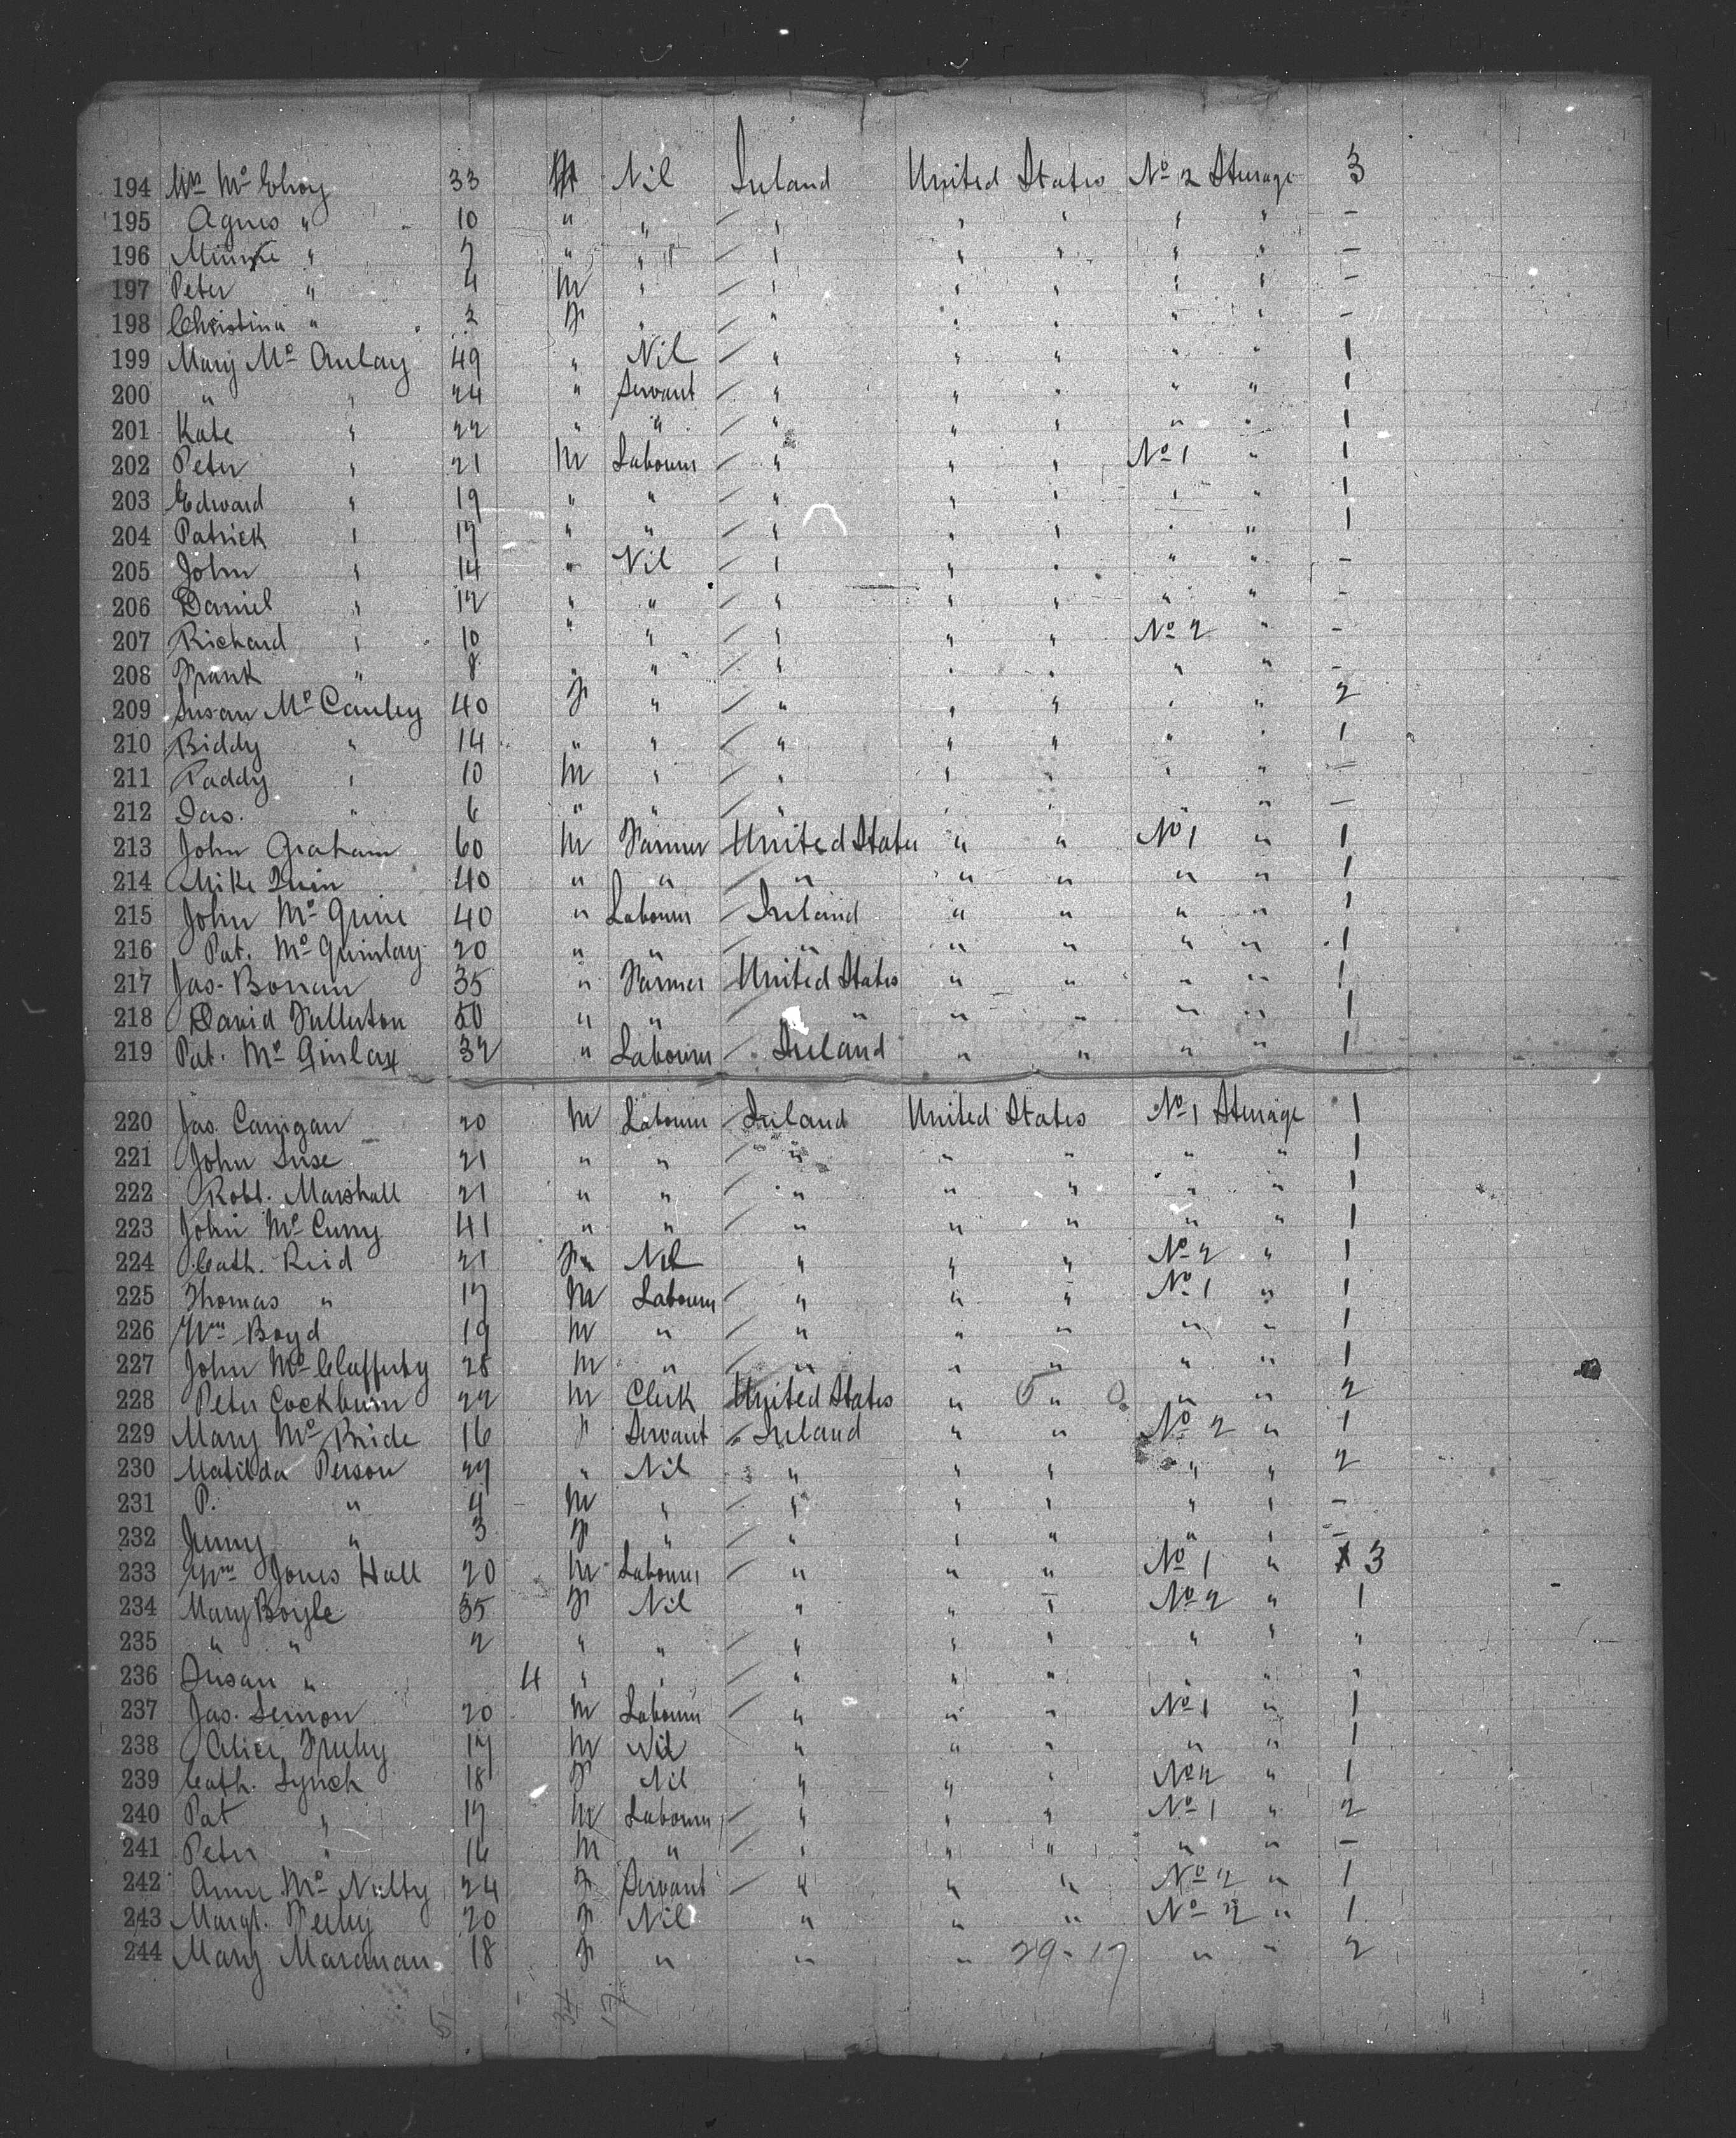 194 Mrs McElroy 33 F Nil Ireland United States No 2 Steerage 3
195 Agnes " 10 " " " " " " " -
196 Minnie " 7 " " " " " " " -
197 Peter " 4 M " " " " " " -
198 Christina " 2 F " " " " " " -
199 Mary McAulay 49 " Nil " " " " " 1
200 " " 24 " Servant " " " " " 1
201 Kate " 22 " " " " " " " 1
202 Peter " 21 M Labourer " " " No 1 " 1
203 Edward " 19 " " " " " " " 1
204 Patrick " 17 " " " " " " " 1
205 John " 14 " Nil " " " " " -
206 Daniel " 12 " " " " " " " -
207 Richard " 10 " " " " " No 2 " -
208 Frank " 8 " " " " " " " -
209 Susan McCauley 40 F " " " " " " 2
210 Biddy " 14 " " " " " " " 1
211 Paddy " 10 M " " " " " " -
212 Jas. " 6 " " " " " " " -
213 John Graham 60 M Farmer United States " " No 1 " 1
214 Mike Quin 40 " " " " " " " 1
215 John McGuire 40 " Labourer Ireland " " " " 1
216 Pat. McGuinlay 20 " " " " " " " 1
217 Jas. Bonan 35 " Farmer United States " " " " 1
218 David Fullerton 50 " " " " " " " 1
219 Pat. McGinlay 32 " Labourer Ireland " " " " 1
220 Jas. Carrigan 20 M Labourer Ireland United States No 1 Steerage 1
221 John 21 " " " " " " " 1
222 Robt. Marshall 21 " " " " " " " 1
223 John McCurry 41 " " " " " " " 1
224 Cath. Reid 21 F Nil " " " No 2 " 1
225 Thomas " 17 M Labourer " " " No 1 " 1
226 Wm Boyd 19 M " " " " " " 1
227 John McClafferty 28 M " " " " " " 1
228 Peter Cockburn 22 M Clerk United States " 5 " 0 " " 2
229 Mary McBride 16 F Servant Ireland " " No 2 " 1
230 Matilda Person 27 " Nil " " " " " 2
231 P. " 4 M " " " " " " -
232 Jenny " 3 F " " " " " " -
233 Wm Jones Hall 20 M Labourer " " " No 1 " 3
234 Mary Boyle 35 F Nil " " " No 2 " 1
235 " " 2 " " " " " " " "
236 Susan " 4 " " " " " " " "
237 Jas. Lemon 20 M Labourer " " " No 1 " 1
238 Alice 17 M Nil " " " " " 1
239 Cath. Lynch 18 F Nil " " " No 2 " 1
240 Pat " 17 M Labourer " " " No 1 " 2
241 Peter " 16 M " " " " " " -
242 Anne McNulty 24 F Servant " " " No 2 " 1
243 Margt. 20 F Nil " " " No 2 " 1
244 Mary 18 F " " " 29-17 " " 2
51 34 17